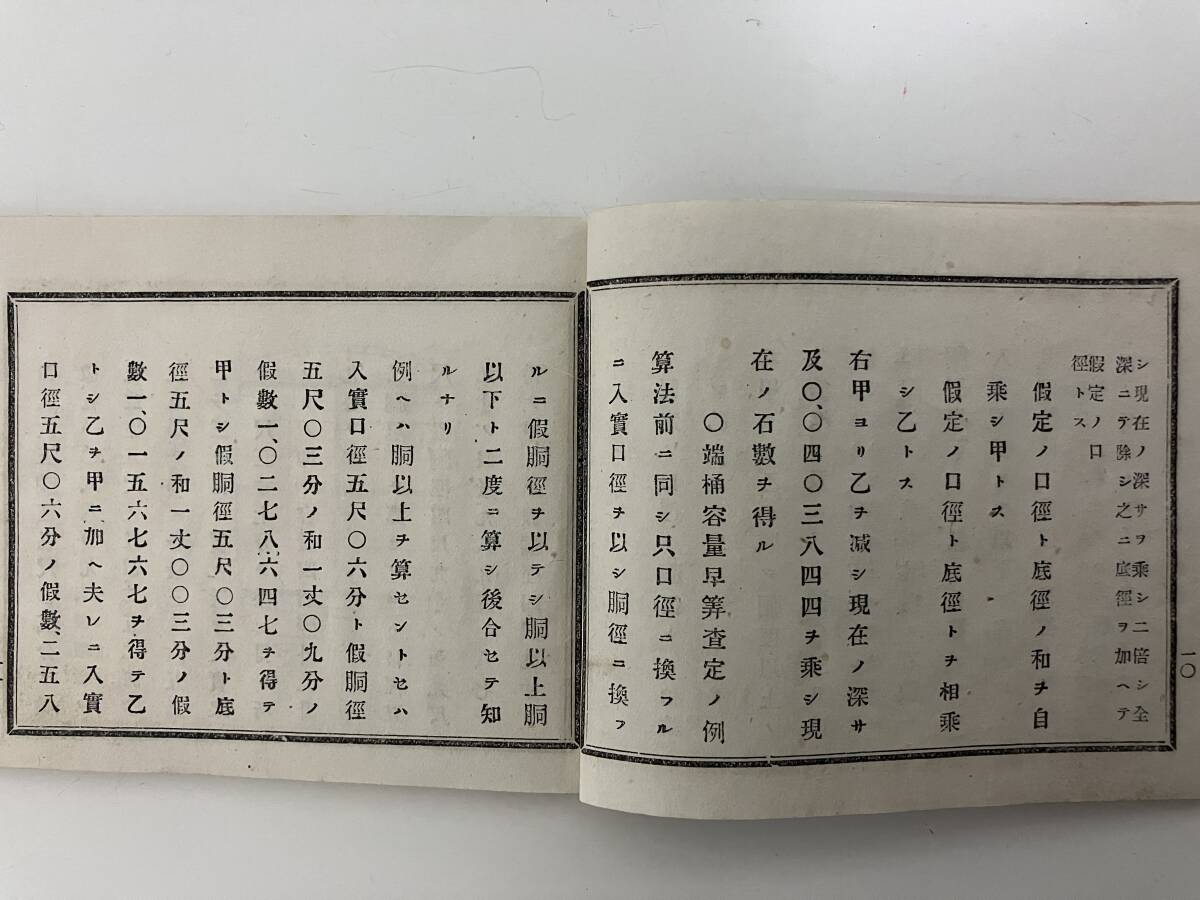 シ現在ノ深サヲ乘シ二倍シ全
深ニテ除シ之ニ底徑ヲ加ヘテ
假定ノ口
徑トス
假定ノ口徑ト底徑ノ和ヲ自
乘シ甲トス
假定ノ口徑ト底徑トヲ相乘
シ乙トス
右甲ヨリ乙ヲ減シ現在ノ深サ
及〇、〇四〇三八四四ヲ乘シ現
在ノ石數ヲ得ル
〇端桶容量早筭査定ノ例
算法前ニ同シ只口徑ニ換フル
ニ入實口徑ヲ以シ胴徑ニ換フ
一〇
ルニ假胴徑ヲ以テシ胴以上胴
以下ト二度ニ算シ後合セテ知
ルナリ
例ヘハ胴以上ヲ算セントセハ
入實口徑五尺〇六分ト假胴徑
五尺〇三分ノ和一丈〇九分ノ
假數一、〇二七八六四七ヲ得テ
甲トシ假胴徑五尺〇三分ト底
徑五尺ノ和一丈〇〇三分ノ假
數一、〇一五六七六七ヲ得テ乙
トシ乙ヲ甲ニ加ヘ夫レニ入實
口徑五尺〇六分ノ假數、二五八